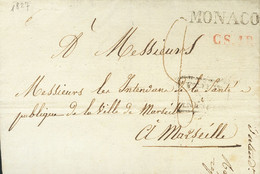 1827
MONACO
CS.1R
A Messieurs
Messieurs les Intendans de la Santé
publique de la Ville de Marseille
A Marseille